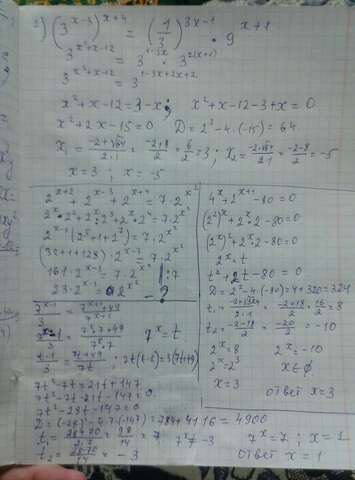 2) (3^{x-3})^{x+4} = (1/3)^{3x-1} · 9^{x+1}
3^{x²+x-12} = 3^{1-3x} · 3^{2(x+1)}
3^{x²+x-12} = 3^{1-3x+2x+2}
x²+x-12=3-x; x²+x-12-3+x=0
x²+2x-15=0, D=2²-4·(-15)=64
x₁ = (-2+√64)/(2·1) = (-2+8)/2 = 6/2 = 3; x₂ = (-2-√64)/(2·1) = (-2-8)/2 = -5
x=3; x=-5
2^{x+2} + 2^{x-3} + 2^{x+4} = 7·2^{x²}
2^x·2²+2^x·2³+2^x·2^4=7·2^{x²}
2^{x-1}(2^5+1+2^7)=7·2^{x²}
(32+1+128)·2^{x-3}=7·2^{x²}
161·2^{x-3}=7·2^{x²} |:7
23·2^{x-3}=2^{x²} - ?
(7^x-1)/3 = (7^{x+1}+49)/7^{x+1}
(7^x-1)/3 = (7^x·7+49)/(7^x·7) 7^x=t
(t-1)/3 = (7t+49)/7t; 7t(t-1)=3(7t+49)
7t²-7t=21t+147
7t²-7t-21t-147=0
7t²-28t-147=0
D=(-28)²-4·7·(-147)=784+4116=4900
t₁ = (28+70)/(2·7) = 98/14 = 7 7^x≠-3
t₂ = (28-70)/14 = -3
4^x+2^{x+1}-80=0
(2²)^x+2^x·2-80=0
(2^x)²+2^x·2-80=0
2^x=t
t²+2t-80=0
D=2²-4·(-80)=4+320=324
t₁ = (-2+√324)/2 = (-2+18)/2 = 16/2 = 8
t₂ = (-2-18)/2 = -20/2 = -10
2^x=8 2^x=-10
2^x=2³ x∈∅
x=3
ответ x=3
7^x=7; x=1
ответ x=1